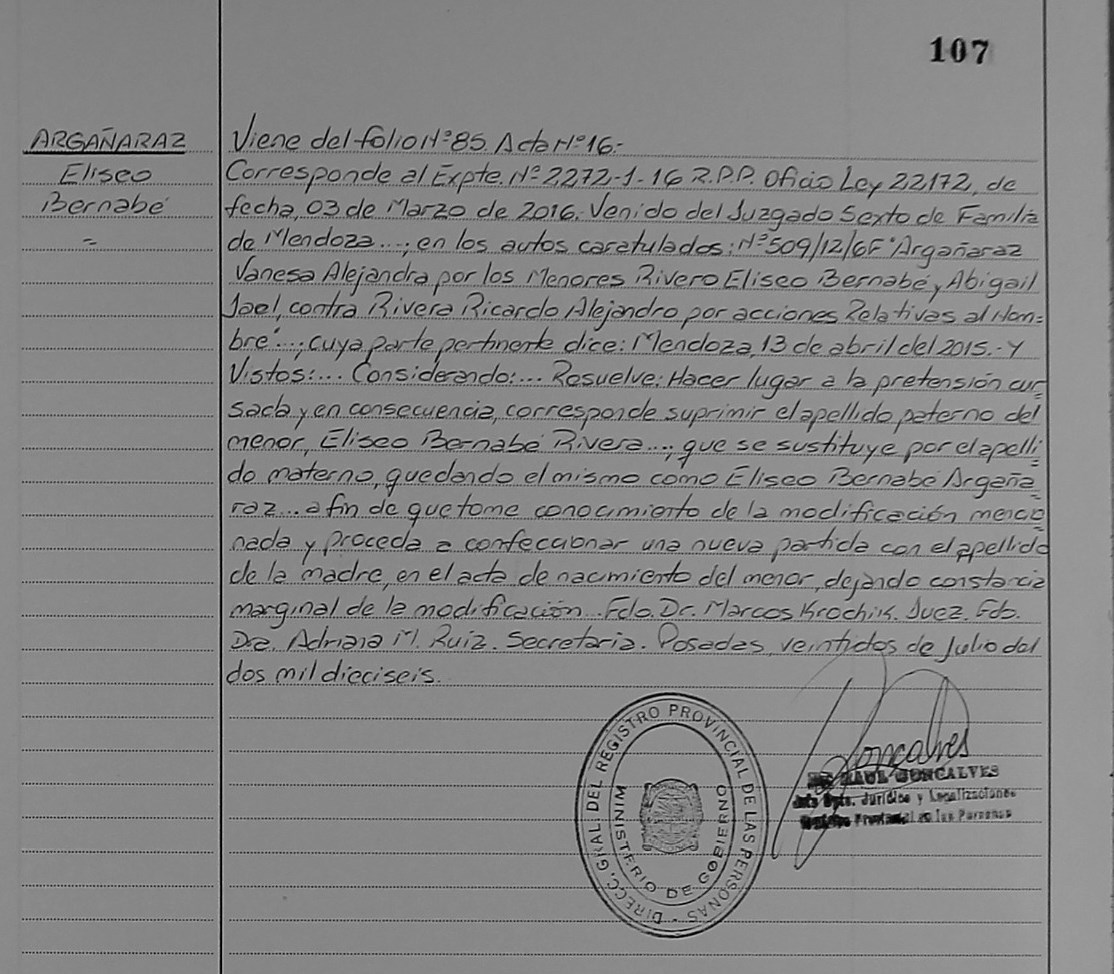 107
ARGAÑARAZ
Eliseo
Bernabé
=
Viene del folio Nº85. Acta Nº16.-
Corresponde al Expte. Nº 2272-1-16 R.P.P. Oficio Ley 22172, de
fecha, 03 de Marzo de 2016. Venido del Juzgado Sexto de Familia
de Mendoza...; en los autos caratulados: Nº509/12/6F "Argañaraz
Vanesa Alejandra por los Menores Rivero Eliseo Bernabé y Abigail
Jael, contra Rivera Ricardo Alejandro por acciones Relativas al Nom=
bre"...; cuya parte pertinente dice: Mendoza, 13 de abril del 2015.- Y
Vistos:... Considerando:... Resuelve: Hacer lugar a la pretensión cur
sada y en consecuencia, corresponde suprimir el apellido paterno del
menor, Eliseo Bernabé Rivera...; que se sustituye por el apelli=
do materno, quedando el mismo como Eliseo Bernabé Argaña=
raz... a fin de que tome conocimiento de la modificación mencio=
nada y proceda a confeccionar una nueva partida con el apellido
de la madre, en el acta de nacimiento del menor, dejando constancia
marginal de la modificación... Fdo. Dr. Marcos Krochik. Juez. Fdo.
Dra. Adriana M. Ruiz. Secretaria. Posadas, veintidos de Julio del
dos mil dieciseis.
DIRECC. GRAL. DEL REGISTRO PROVINCIAL DE LAS PERSONAS -
MINISTERIO DE GOBIERNO
Goncalves
DR. RAUL GONCALVES
Jefe Dpto. Jurídico y Legalizaciones
Registro Provincial de las Personas